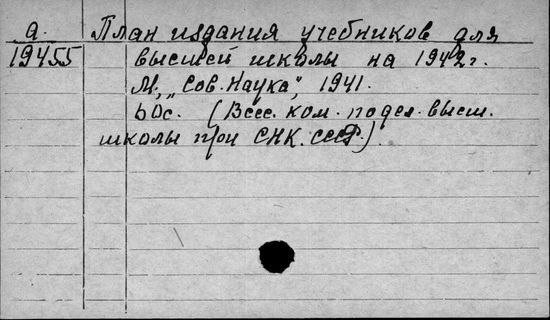 а. План издания учебников для
19455 высшей школы на 1942г.
М., „Сов. Наука", 1941.
60с. (Всес. ком. по дел. высш.
школы при СНК. СССР.)